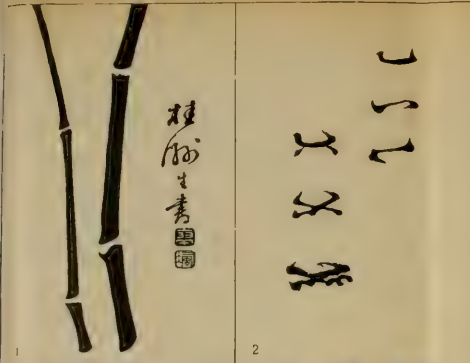 桂
洲
生
書
1
2